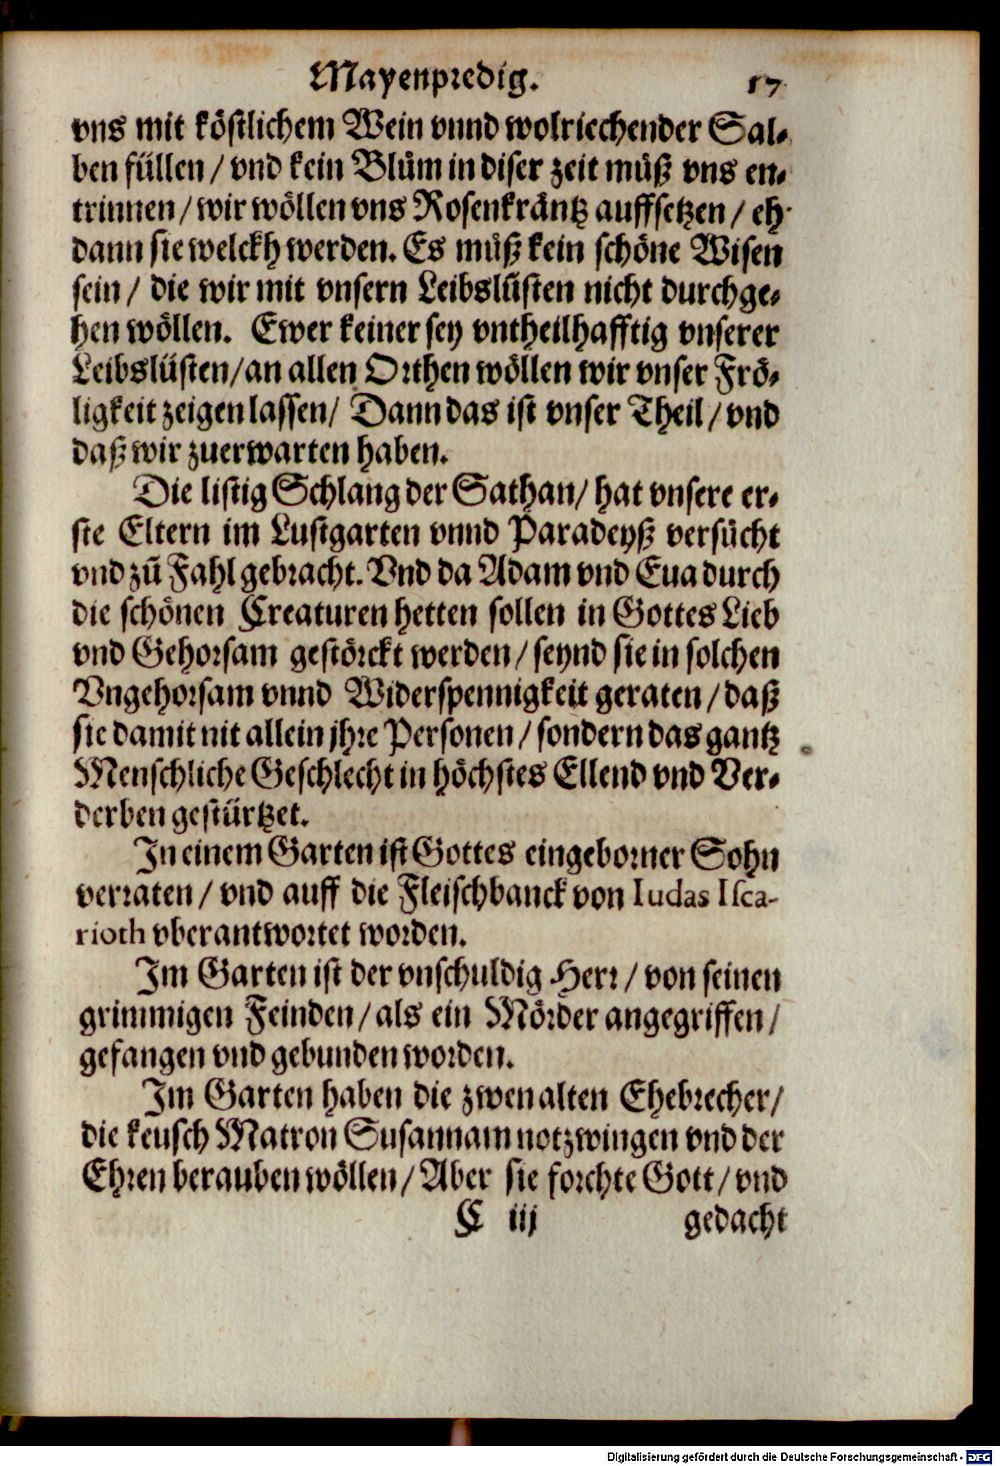 Mayenpredig. 17
vns mit köstlichem Wein vnnd wolriechender Sal-
ben füllen / vnd kein Blům in diser zeit můß vns en-
trinnen / wir wöllen vns Rosenkräntz auffsetzen / eh
dann sie welckh werden. Es můß kein schöne Wisen
sein / die wir mit vnsern Leibslüsten nicht durchge-
hen wöllen. Ewer keiner sey vntheilhafftig vnserer
Leibslüsten / an allen Orthen wöllen wir vnser Frö-
ligkeit zeigen lassen / Dann das ist vnser Theil / vnd
daß wir zuerwarten haben.
Die listig Schlang der Sathan / hat vnsere er-
ste Eltern im Lustgarten vnnd Paradeyß versůcht
vnd zů Fahl gebracht. Vnd da Adam vnd Eua durch
die schönen Creaturen hetten sollen in Gottes Lieb
vnd Gehorsam gestörckt werden / seynd sie in solchen
Vngehorsam vnnd Widerspennigkeit geraten / daß
sie damit nit allein jhre Personen / sondern das gantz
Menschliche Geschlecht in höchstes Ellend vnd Ver-
derben gestürtzet.
In einem Garten ist Gottes eingeborner Sohn
verraten / vnd auff die Fleischbanck von Iudas Isca-
rioth vberantwortet worden.
Im Garten ist der vnschuldig Herr / von seinen
grimmigen Feinden / als ein Mörder angegriffen /
gefangen vnd gebunden worden.
Im Garten haben die zwen alten Ehebrecher /
die keusch Matron Susannam notzwingen vnd der
Ehren berauben wöllen / Aber sie forchte Gott / vnd
C iij gedacht
Digitalisierung gefördert durch die Deutsche Forschungsgemeinschaft - DFG